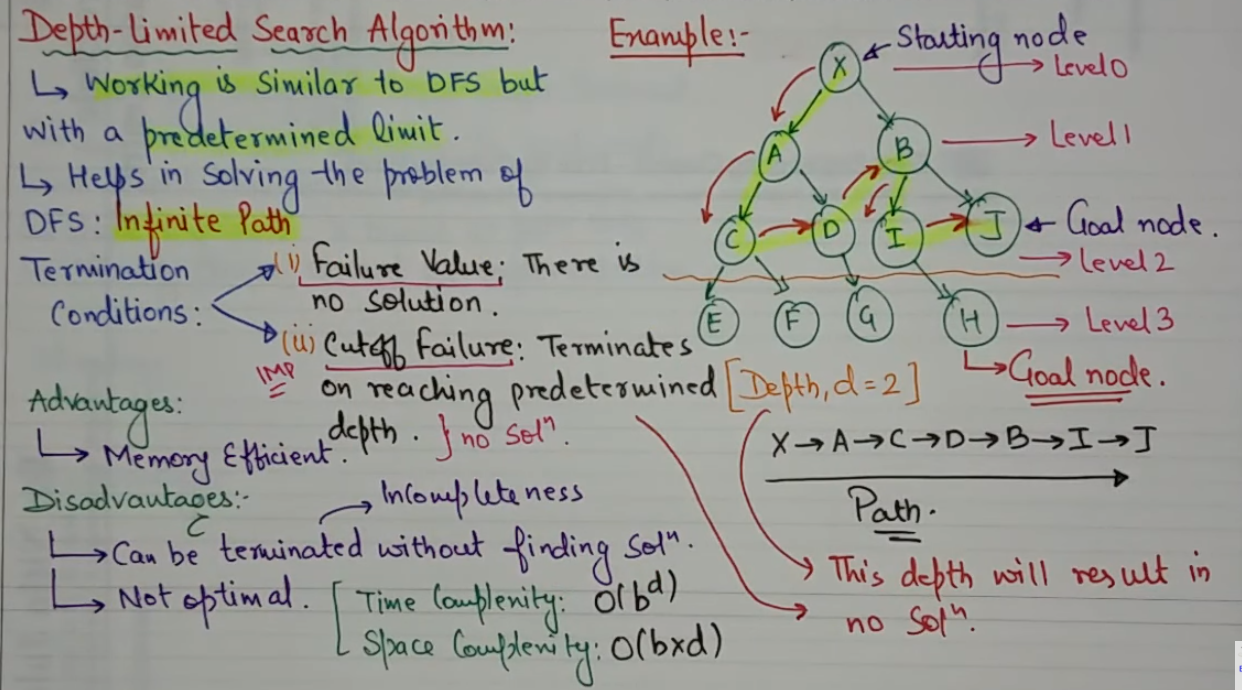 Depth-Limited Search Algorithm:
↳ Working is similar to DFS but
with a predetermined limit.
↳ Helps in solving the problem of
DFS: Infinite Path
Termination
Conditions:
(i) Failure Value: There is
no solution.
(ii) Cutoff Failure: Terminates
IMP
on reaching predetermined
depth. } no Solⁿ.
Advantages:
↳ Memory Efficient.
Disadvantages:-
→ Incompleteness
↳ Can be terminated without finding Solⁿ.
↳ Not optimal.
[ Time Complexity: O(b^d)
Space Complexity: O(b×d)
Example:-
X ← Starting node
→ Level 0
A B → Level 1
C D I J ← Goal node.
→ Level 2
E F G H → Level 3
↳ Goal node.
[Depth, d = 2]
X → A → C → D → B → I → J
Path.
→ This depth will result in
no Solⁿ.